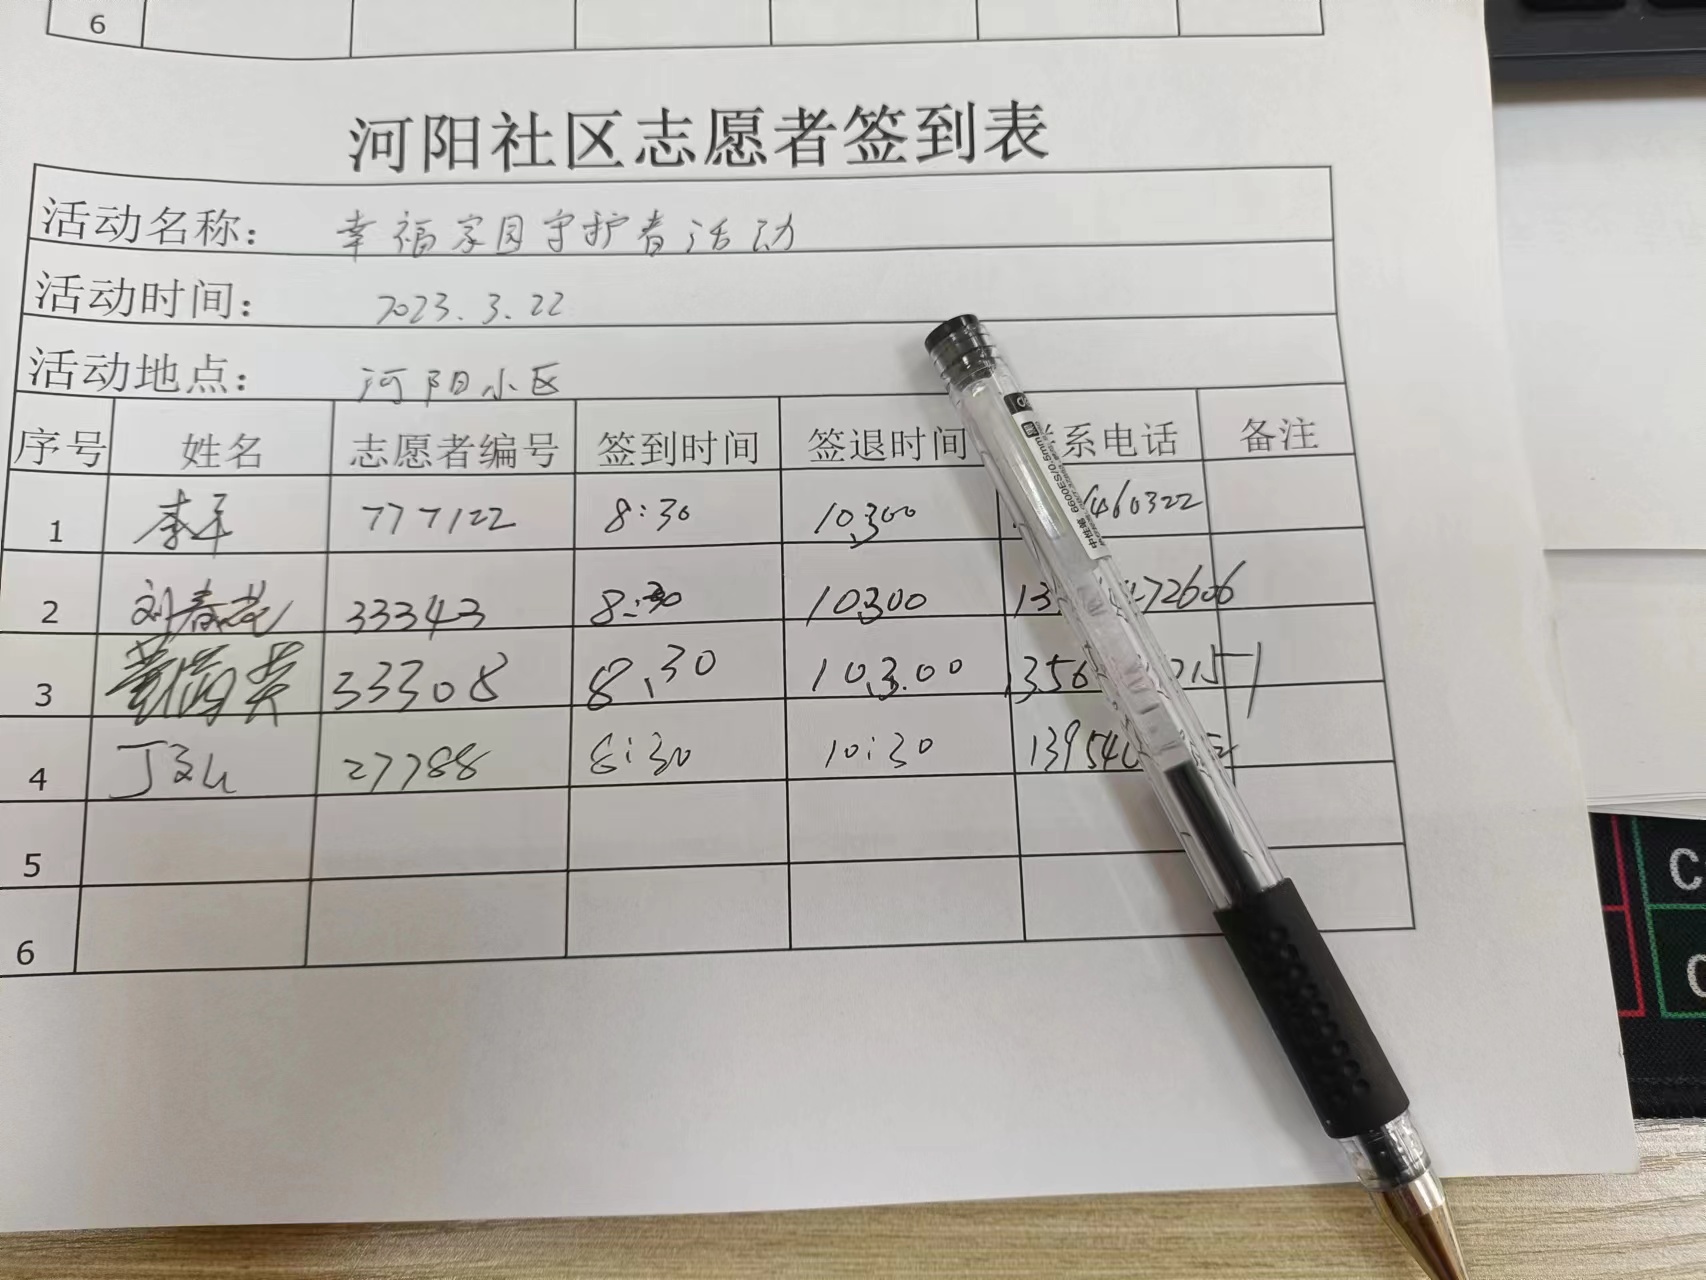 6
河阳社区志愿者签到表
活动名称： 幸福家园守护者活动
活动时间： 2023.3.22
活动地点： 河阳小区
序号 姓名 志愿者编号 签到时间 签退时间 系电话 备注
1 777122 8:30 10:300 460322
2 刘春花 33343 8:30 10:300 13 472606
3 33308 8:30 10:3.00 1356 0151
4 27788 8:30 10:30 13954
5
6
中性笔 6600ES/0.5mm
C